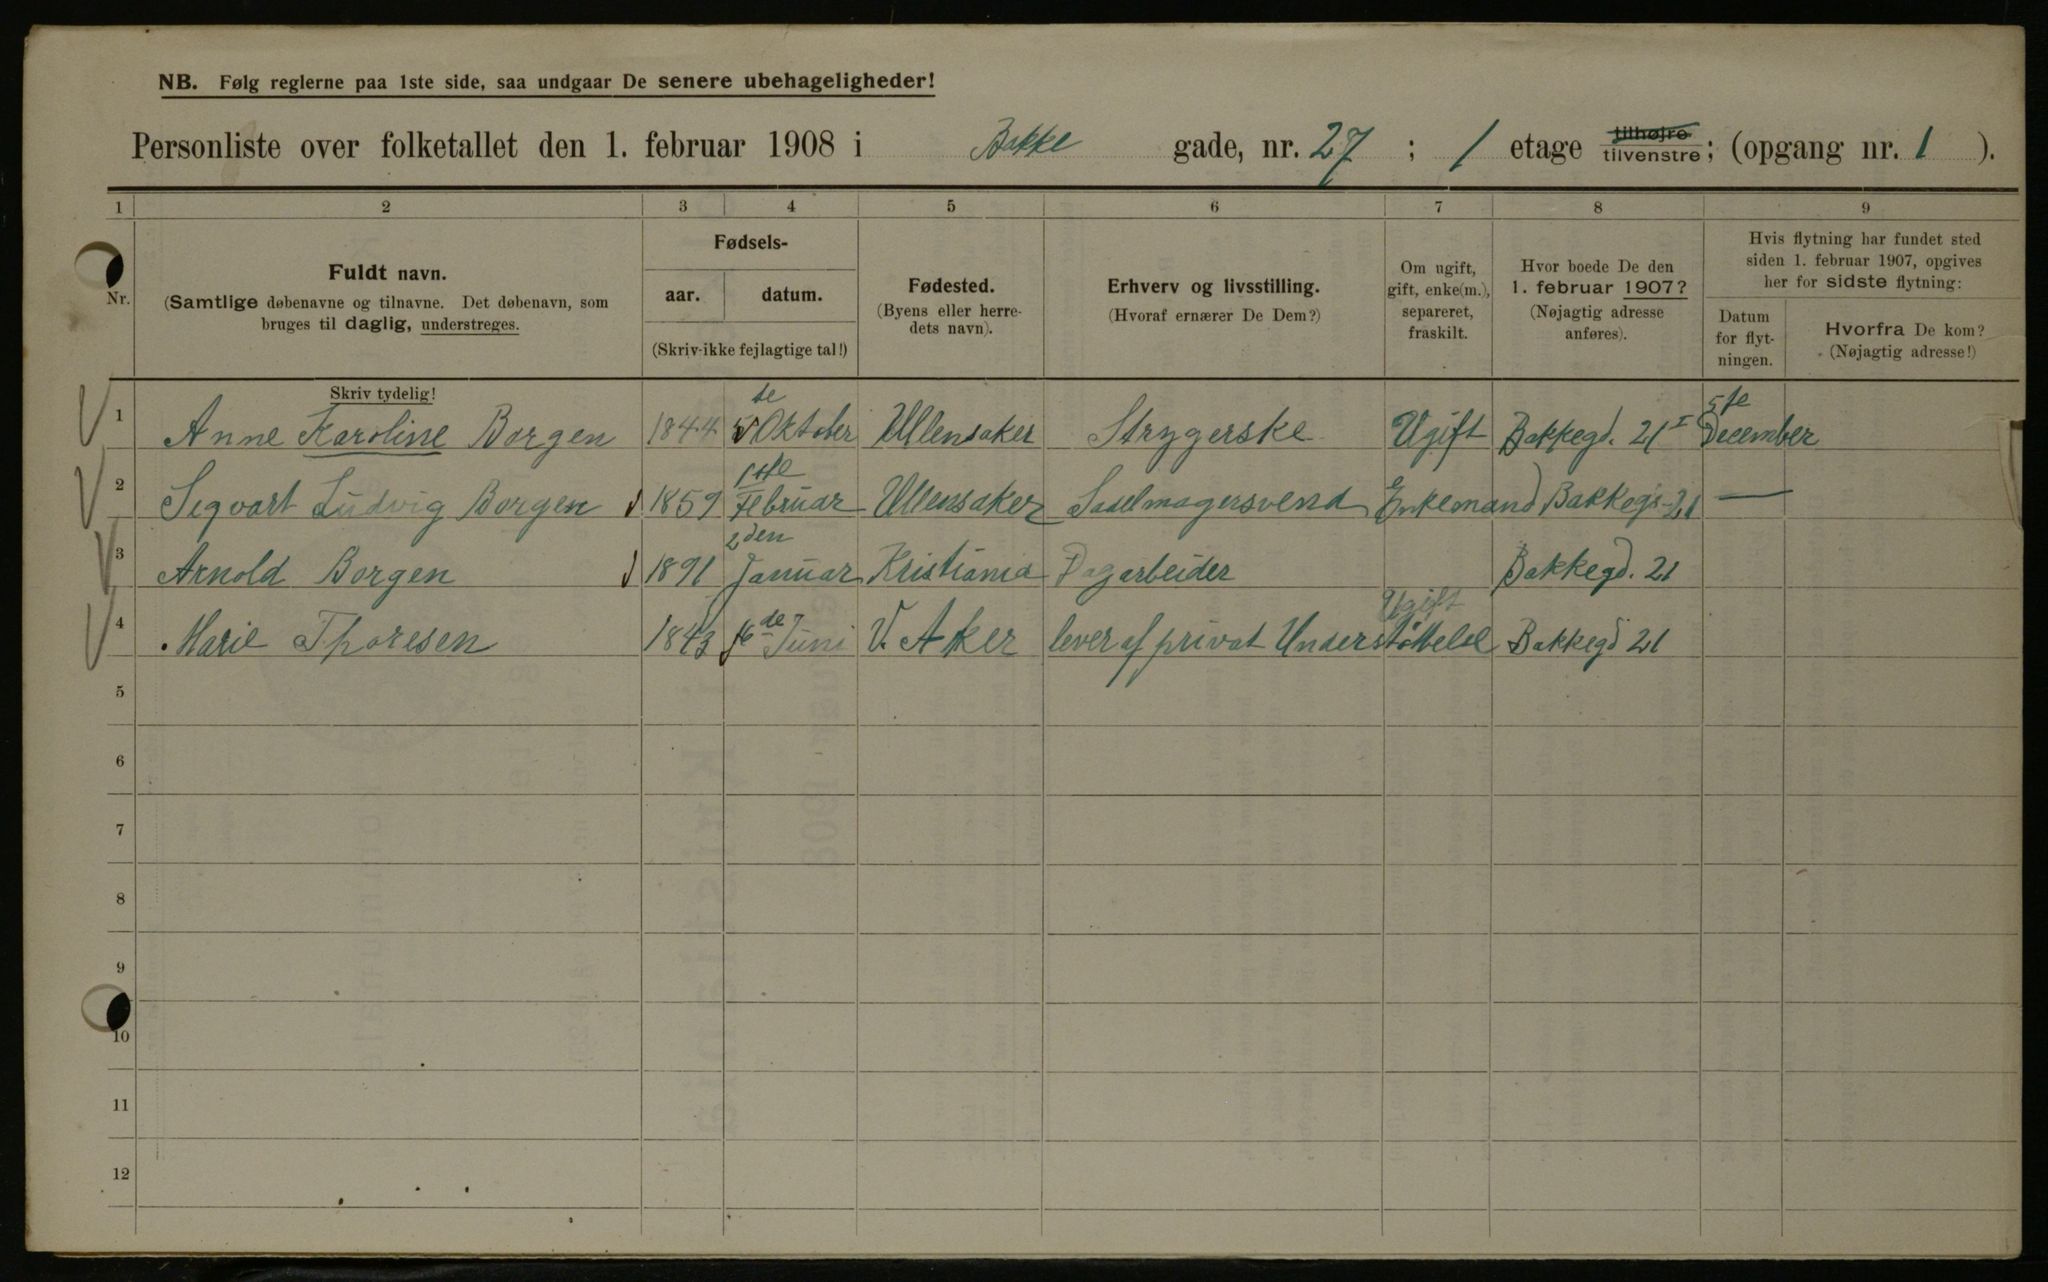 NB. Følg reglerne paa 1ste side, saa undgaar De senere ubehageligheder!
Personliste over folketallet den 1. februar 1908 i Bakke gade, nr. 27 ; 1 etage tilhøjre tilvenstre; (opgang nr. 1 ).
1 2 3 4 5 6 7 8 9
Nr.
Fuldt navn.
(Samtlige døbenavne og tilnavne. Det døbenavn, som
bruges til daglig, understreges.
Skriv tydelig!
Fødsels-
aar. datum.
(Skriv ikke fejlagtige tal!)
Fødested.
(Byens eller herre-
dets navn).
Erhverv og livsstilling.
(Hvoraf ernærer De Dem?)
Om ugift,
gift, enke(m.),
separeret,
fraskilt.
Hvor boede De den
1. februar 1907?
(Nøjagtig adresse
anføres).
Hvis flytning har fundet sted
siden 1. februar 1907, opgives
her for sidste flytning:
Datum
for flyt-
ningen.
Hvorfra De kom?
(Nøjagtig adresse!)
1 Anne Karoline Borgen 1844 5te Oktober Ullensaker Strygerske Ugift Bakkegd. 21 I 5te December
2 Segvart Ludvig Borgen 1859 1ste Februar Ullensaker Sadelmagersvend Enkemand Bakkegd 21 —
3 Arnold Borgen 1891 2den Januar Kristiania Dagarbeider Bakkegd. 21
4 Marie Thoresen 1843 16de Juni V. Aker lever af privat Understøttelse Ugift Bakkegd 21
5
6
7
8
9
10
11
12